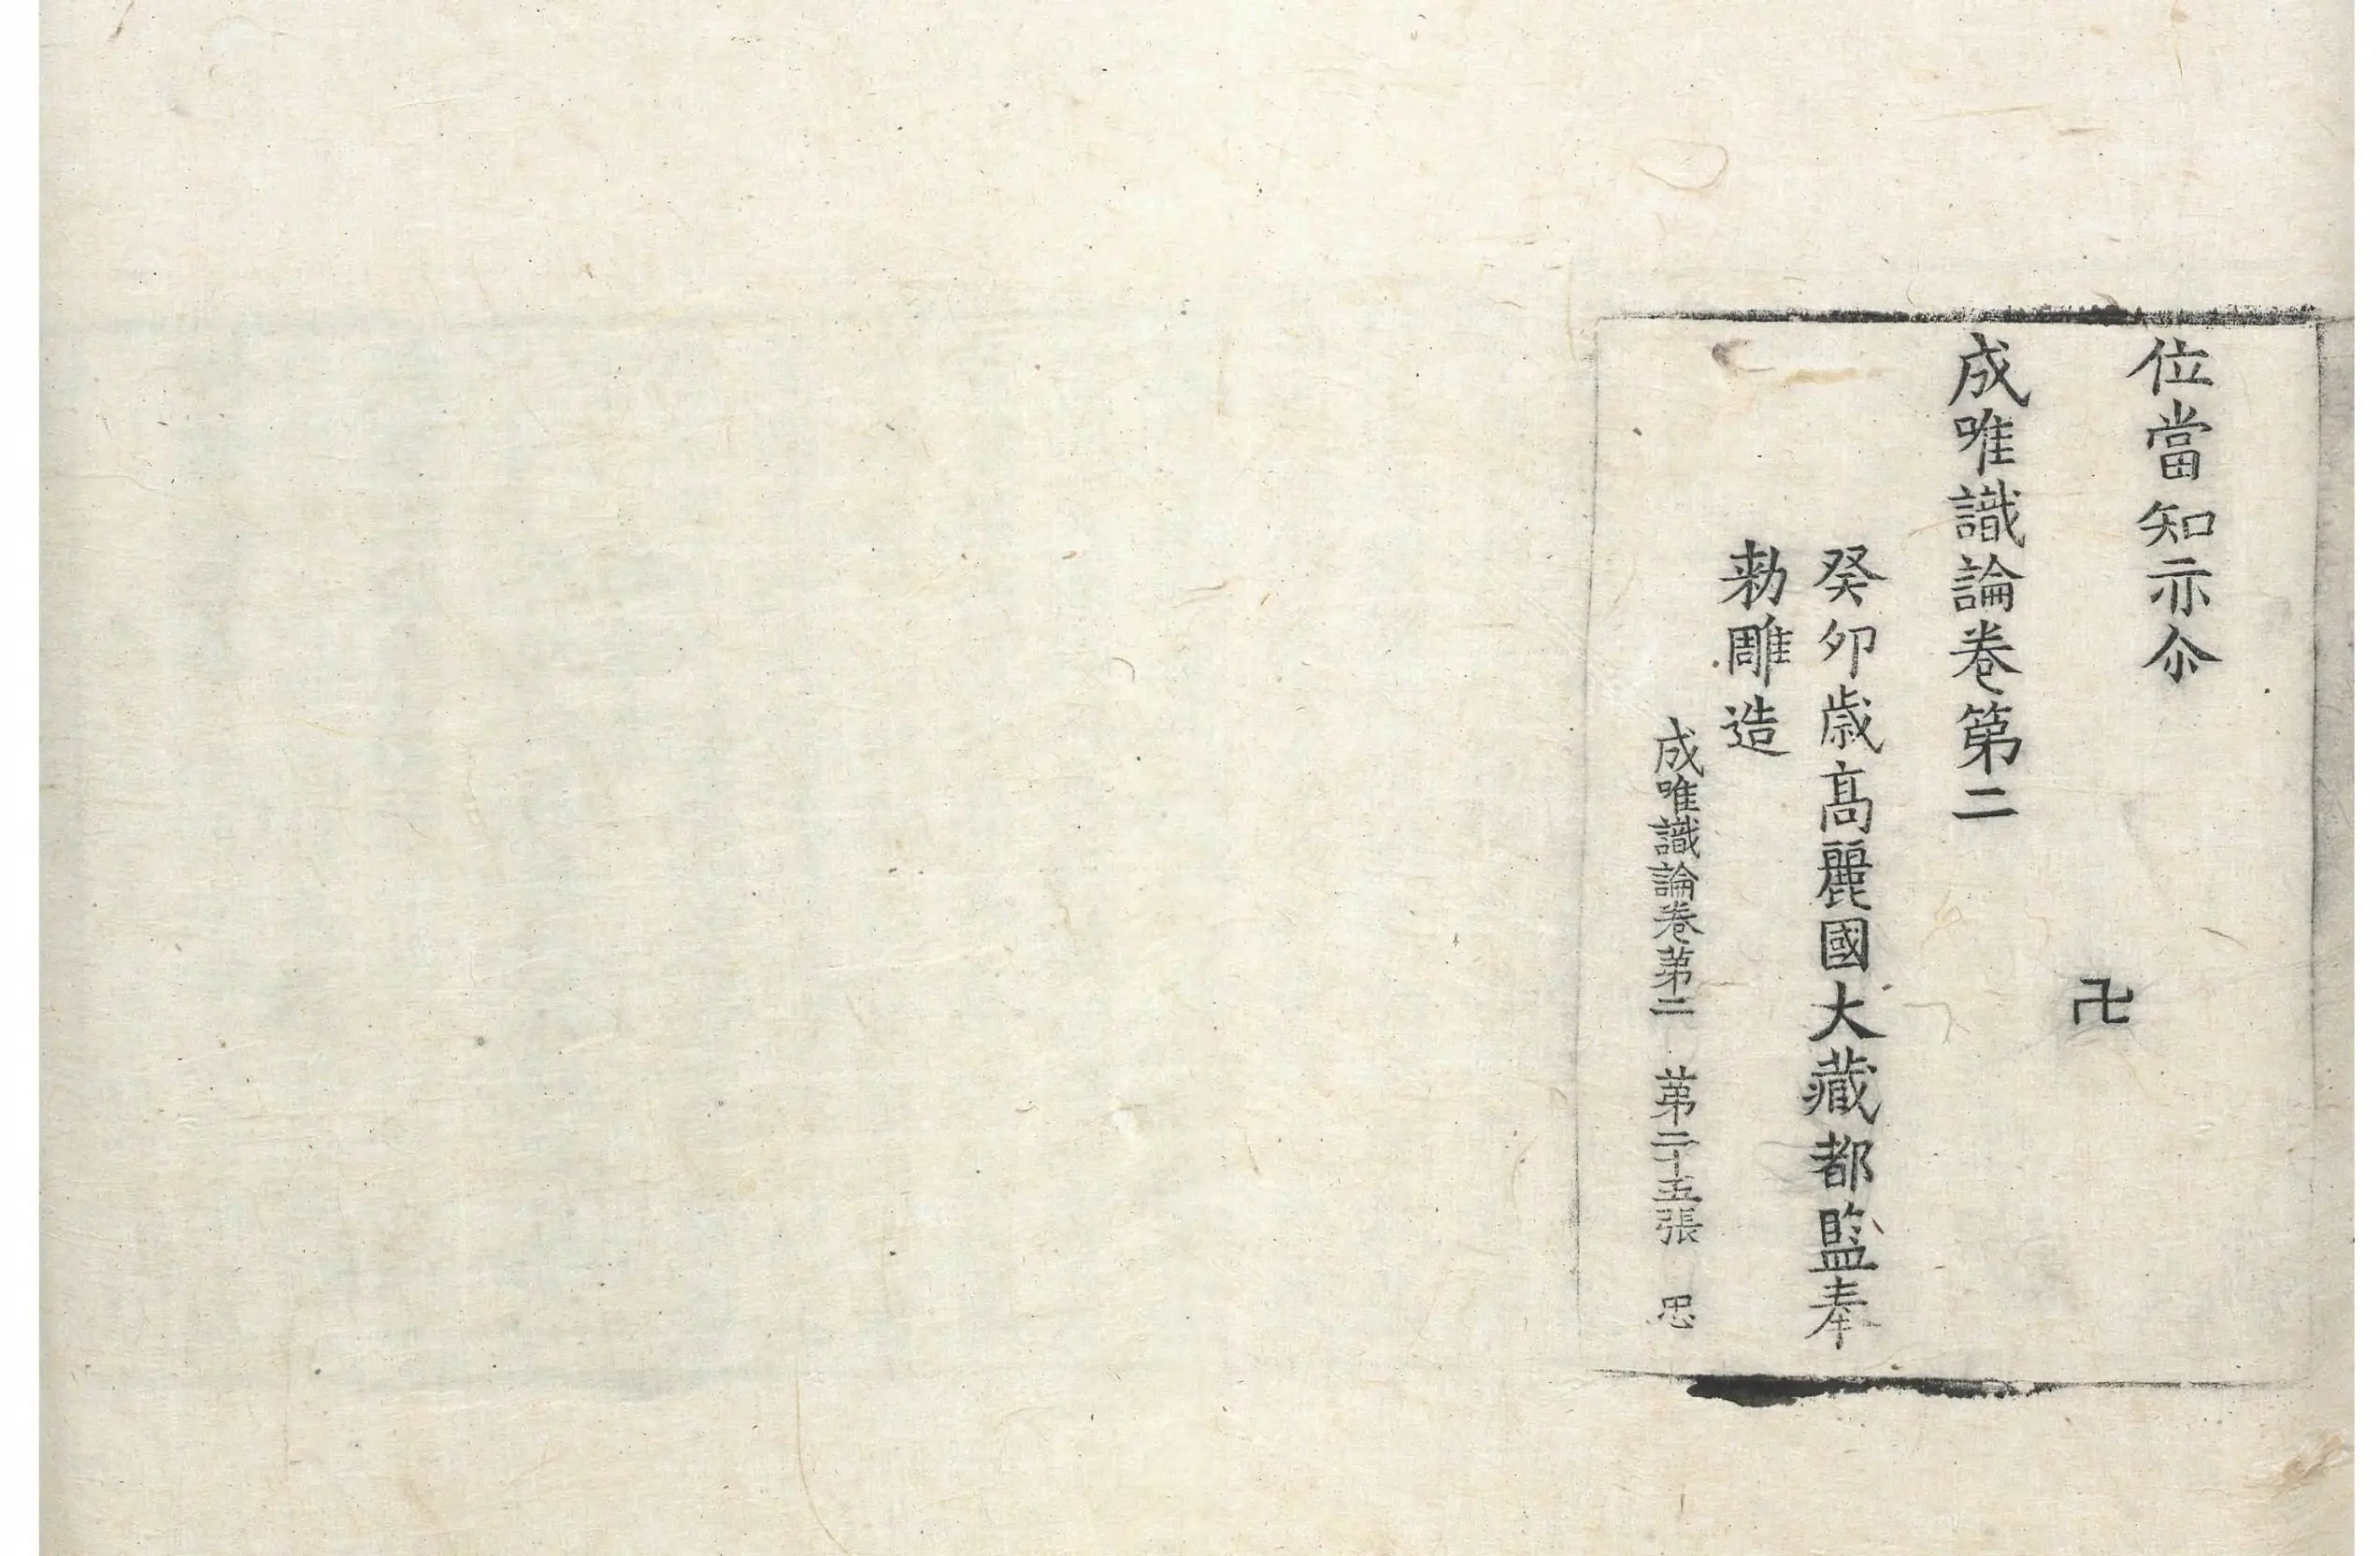 位當知亦尒
卍
成唯識論卷第二
癸卯歲高麗國大藏都監奉
勑雕造
成唯識論卷第二 第二十五張 思